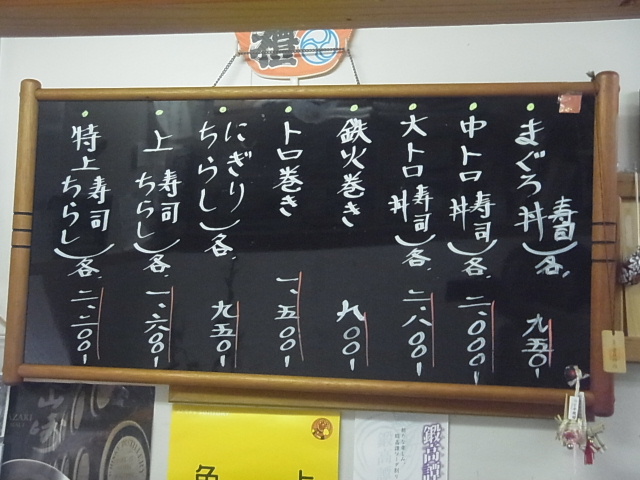 橙
まぐろ 寿司 丼 )各. 九五〇ー
中トロ 寿司 丼 )各. 二、〇〇〇ー
大トロ 寿司 丼 )各. 二、八〇〇ー
鉄火巻き 九〇〇ー
トロ巻き 一、五〇〇ー
にぎり ちらし )各. 九五〇ー
上 寿司 ちらし )各. 一、六〇〇ー
特上 寿司 ちらし )各. 二、二〇〇ー